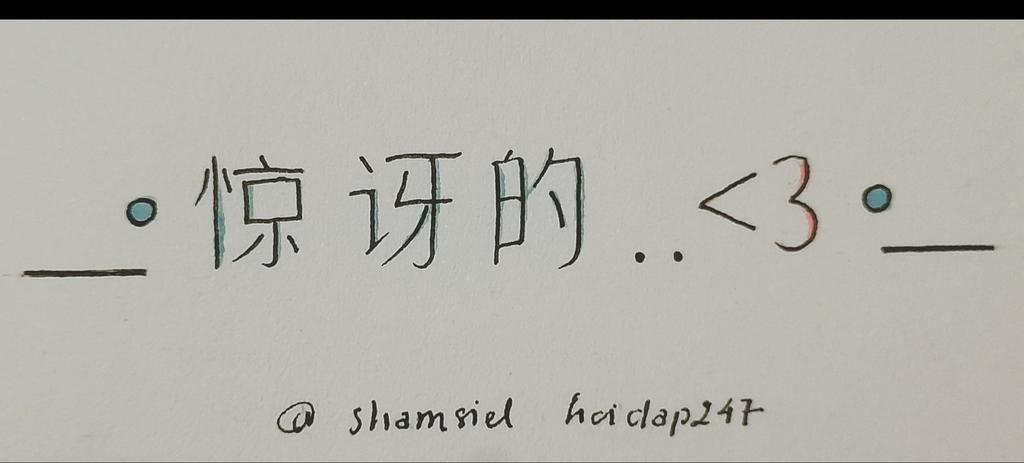 惊讶的..<3
@ shamsiel haidap247